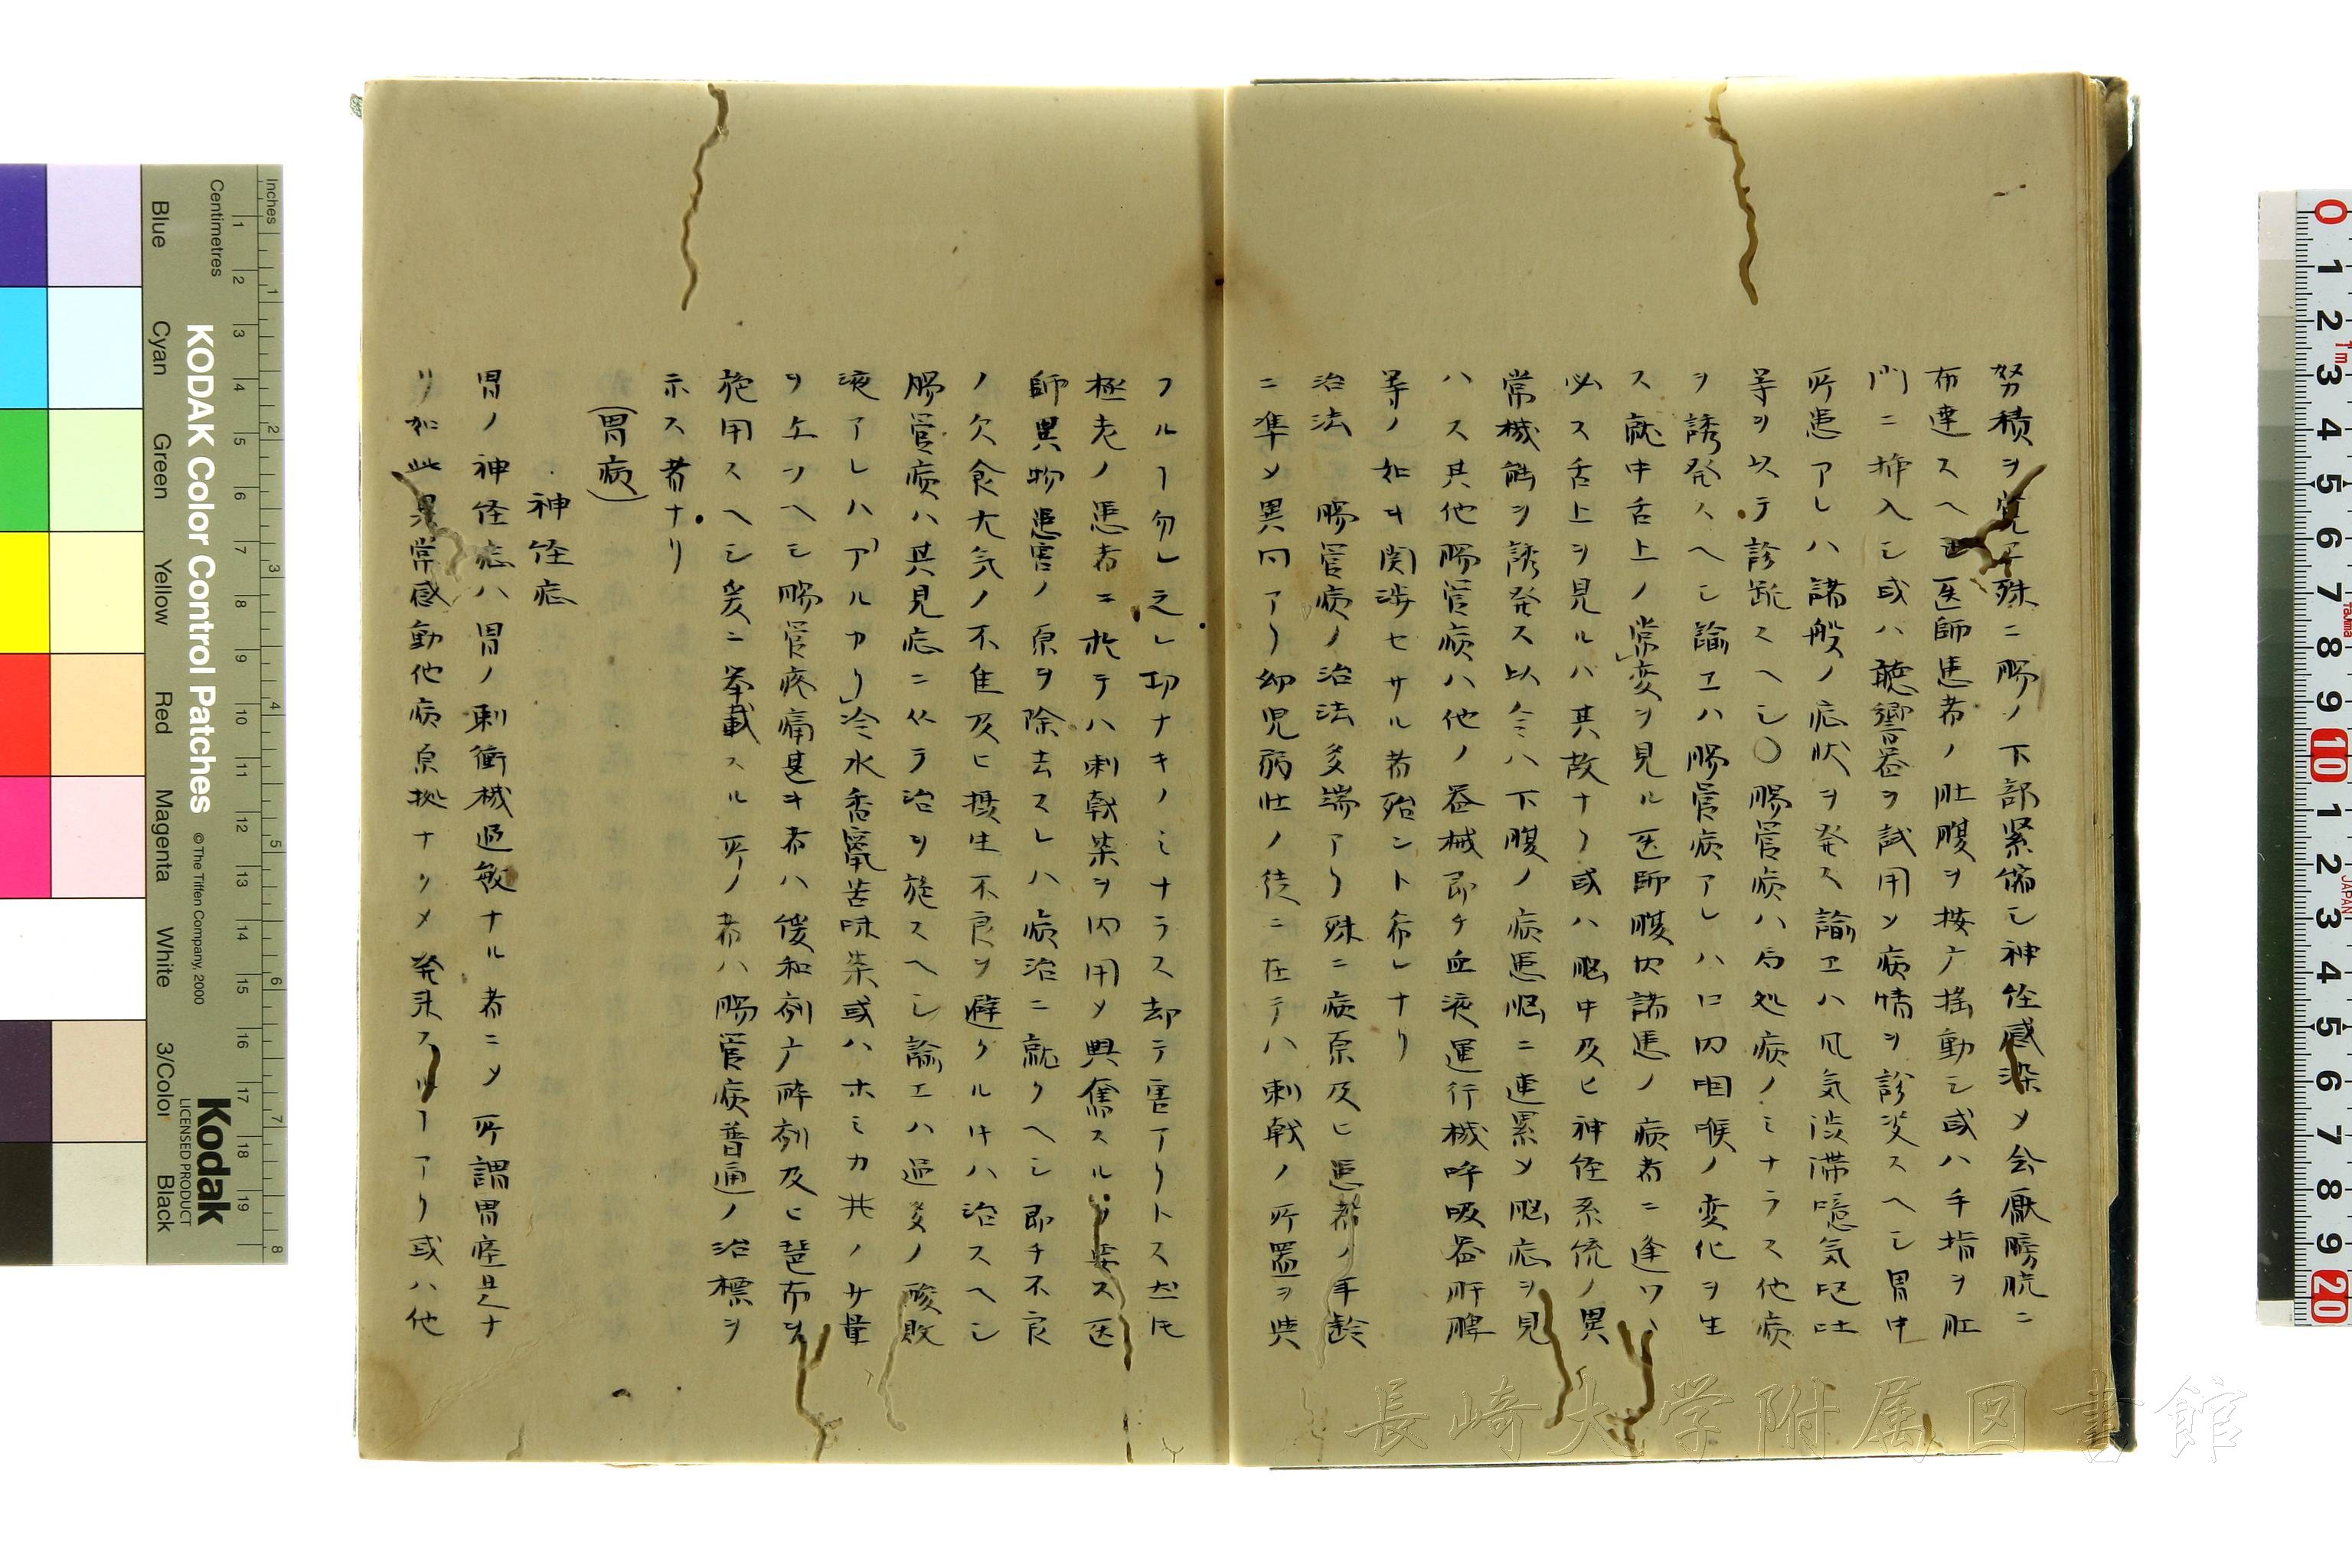 努積ヲ覚エ殊ニ腸ノ下部緊縮シ神経感染メ会厭膀胱ニ
布達スヘシ医師患者ノ肚腹ヲ按广揺動シ或ハ手指ヲ肛
門ニ挿入シ或ハ聴響器ヲ試用メ病情ヲ診察スヘシ胃中
所患アレハ諸般ノ症状ヲ発ス諭エハ風気渋滞噫気嘔吐
等ヲ以テ診断スヘシ〇腸管病ハ局処病ノミナラス他病
ヲ誘発スヘシ諭エハ腸管病アレハ口内咽喉ノ変化ヲ生
ス就中舌上ノ常変ヲ見ル医師腹内諸患ノ病者ニ逢ワハ
必ス舌上ヲ見ルハ其故ナリ或ハ脳中及ヒ神経系統ノ異
常械能ヲ誘発ス以令ハ下腹ノ病患脳ニ連累メ脳症ヲ見
ハス其他腸管病ハ他ノ器械即チ血液運行械呼吸器肝脾
等ノ如キ関渉セサル者殆ント希レナリ
治法 腸管病ノ治法多端アリ殊ニ病原及ヒ患者ノ年齢
ニ準メ異同アリ幼児弱壮ノ徒ニ在テハ刺戟ノ所置ヲ与
フルー勿レ之レ功ナキノミナラス却テ害アリトス尤
極老ノ患者ニ於テハ刺戟薬ヲ内用メ興奮スルヲ要ス医
師異物患害ノ原ヲ除去スレハ病治ニ就クヘシ即チ不良
ノ欠食大気ノ不佳及ヒ摂生不良ヲ避クルキハ治スヘシ
腸管病ハ其見症ニ从テ治ヲ施スヘシ諭エハ過多ノ酸敗
液アレハ「アルカリ」冷水香竄苦味薬或ハホミカ共ノ少量
ヲ与ウヘシ腸管疼痛甚キ者ハ緩和剤广酔剤及ヒ琶布ヲ
施用スヘシ爰ニ挙載スル所ノ者ハ腸管病普通ノ治標ヲ
示ス者ナリ
(胃病)
神経症
胃ノ神経症ハ胃ノ刺衝械過敏ナル者ニメ所謂胃痙是ナ
リ如此異常感動他病原拠ナクメ発来スルーアリ或ハ他
長崎大学附属図書館
Inches
Centimetres
Blue
Cyan
Green
Yellow
Red
Magenta
White
3/Color
Black
KODAK Color Control Patches
© The Tiffen Company, 2000
Kodak
LICENSED PRODUCT
JAPAN